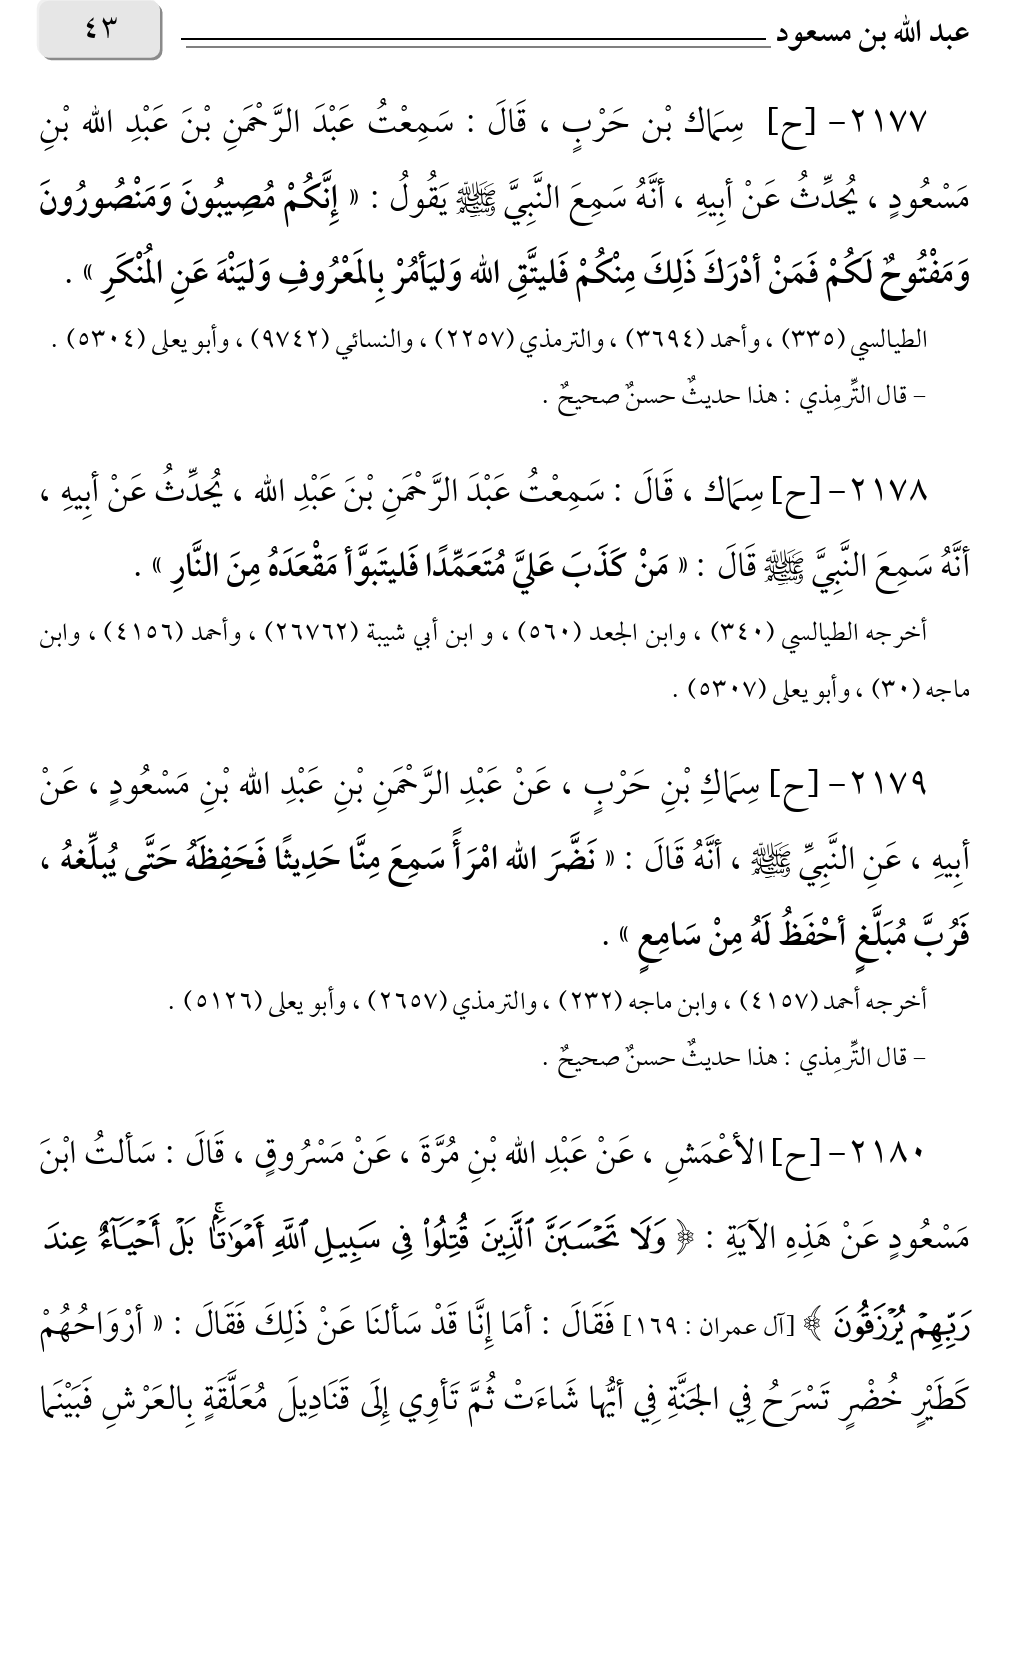 عبد الله بن مسعود ٤٣
٢١٧٧- [ح] سِمَاك بْن حَرْبٍ ، قَالَ : سَمِعْتُ عَبْدَ الرَّحْمَنِ بْنَ عَبْدِ الله بْنِ
مَسْعُودٍ ، يُحَدِّثُ عَنْ أبِيهِ ، أنَّهُ سَمِعَ النَّبِيَّ ﷺ يَقُولُ : « إنَّكُمْ مُصِيبُونَ وَمَنْصُورُونَ
وَمَفْتُوحٌ لَكُمْ فَمَنْ أدْرَكَ ذَلِكَ مِنْكُمْ فَليتَّقِ الله وَليَأمُرْ بِالمَعْرُوفِ وَليَنْهَ عَنِ المُنْكَرِ » .
الطيالسي (٣٣٥) ، وأحمد (٣٦٩٤) ، والترمذي (٢٢٥٧) ، والنسائي (٩٧٤٢) ، وأبو يعلى (٥٣٠٤) .
- قال التِّرمِذي : هذا حديثٌ حسنٌ صحيحٌ .
٢١٧٨- [ح] سِمَاك ، قَالَ : سَمِعْتُ عَبْدَ الرَّحْمَنِ بْنَ عَبْدِ الله ، يُحَدِّثُ عَنْ أبِيهِ ،
أنَّهُ سَمِعَ النَّبِيَّ ﷺ قَالَ : « مَنْ كَذَبَ عَليَّ مُتَعَمِّدًا فَليتَبوَّأ مَقْعَدَهُ مِنَ النَّارِ » .
أخرجه الطيالسي (٣٤٠) ، وابن الجعد (٥٦٠) ، و ابن أبي شيبة (٢٦٧٦٢) ، وأحمد (٤١٥٦) ، وابن
ماجه (٣٠) ، وأبو يعلى (٥٣٠٧) .
٢١٧٩- [ح] سِمَاكِ بْنِ حَرْبٍ ، عَنْ عَبْدِ الرَّحْمَنِ بْنِ عَبْدِ الله بْنِ مَسْعُودٍ ، عَنْ
أبِيهِ ، عَنِ النَّبِيِّ ﷺ ، أنَّهُ قَالَ : « نَضَّرَ الله امْرَأً سَمِعَ مِنَّا حَدِيثًا فَحَفِظَهُ حَتَّى يُبلِّغهُ ،
فَرُبَّ مُبَلَّغٍ أحْفَظُ لَهُ مِنْ سَامِعٍ » .
أخرجه أحمد (٤١٥٧) ، وابن ماجه (٢٣٢) ، والترمذي (٢٦٥٧) ، وأبو يعلى (٥١٢٦) .
- قال التِّرمِذي : هذا حديثٌ حسنٌ صحيحٌ .
٢١٨٠- [ح] الأعْمَشِ ، عَنْ عَبْدِ الله بْنِ مُرَّةَ ، عَنْ مَسْرُوقٍ ، قَالَ : سَألتُ ابْنَ
مَسْعُودٍ عَنْ هَذِهِ الآيَةِ : ﴿ وَلَا تَحْسَبَنَّ ٱلَّذِينَ قُتِلُوا۟ فِى سَبِيلِ ٱللَّهِ أَمْوَٰتًۢا ۚ بَلْ أَحْيَآءٌ عِندَ
رَبِّهِمْ يُرْزَقُونَ ﴾ [آل عمران : ١٦٩] فَقَالَ : أمَا إنَّا قَدْ سَألنَا عَنْ ذَلِكَ فَقَالَ : « أرْوَاحُهُمْ
كَطَيْرٍ خُضْرٍ تَسْرَحُ فِي الجَنَّةِ فِي أيُّها شَاءَتْ ثُمَّ تَأوِي إلَى قَنَادِيلَ مُعَلَّقَةٍ بِالعَرْشِ فَبَيْنَما